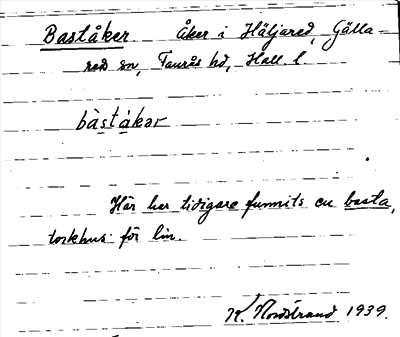 Baståker Åker i Häljared, Gälla-
red sn, Faurås hd, Hall. l.
bàståkər
Här har tidigare funnits en basta,
torkhus för lin.
K. Nordstrand 1939.